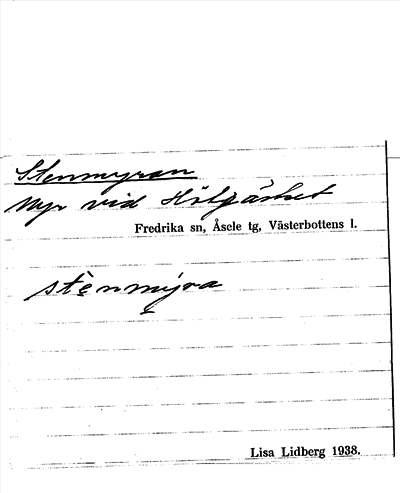 Stenmyran
Myr vid
Fredrika sn, Åsele tg, Västerbottens l.
stenmýra
Lisa Lidberg 1938.